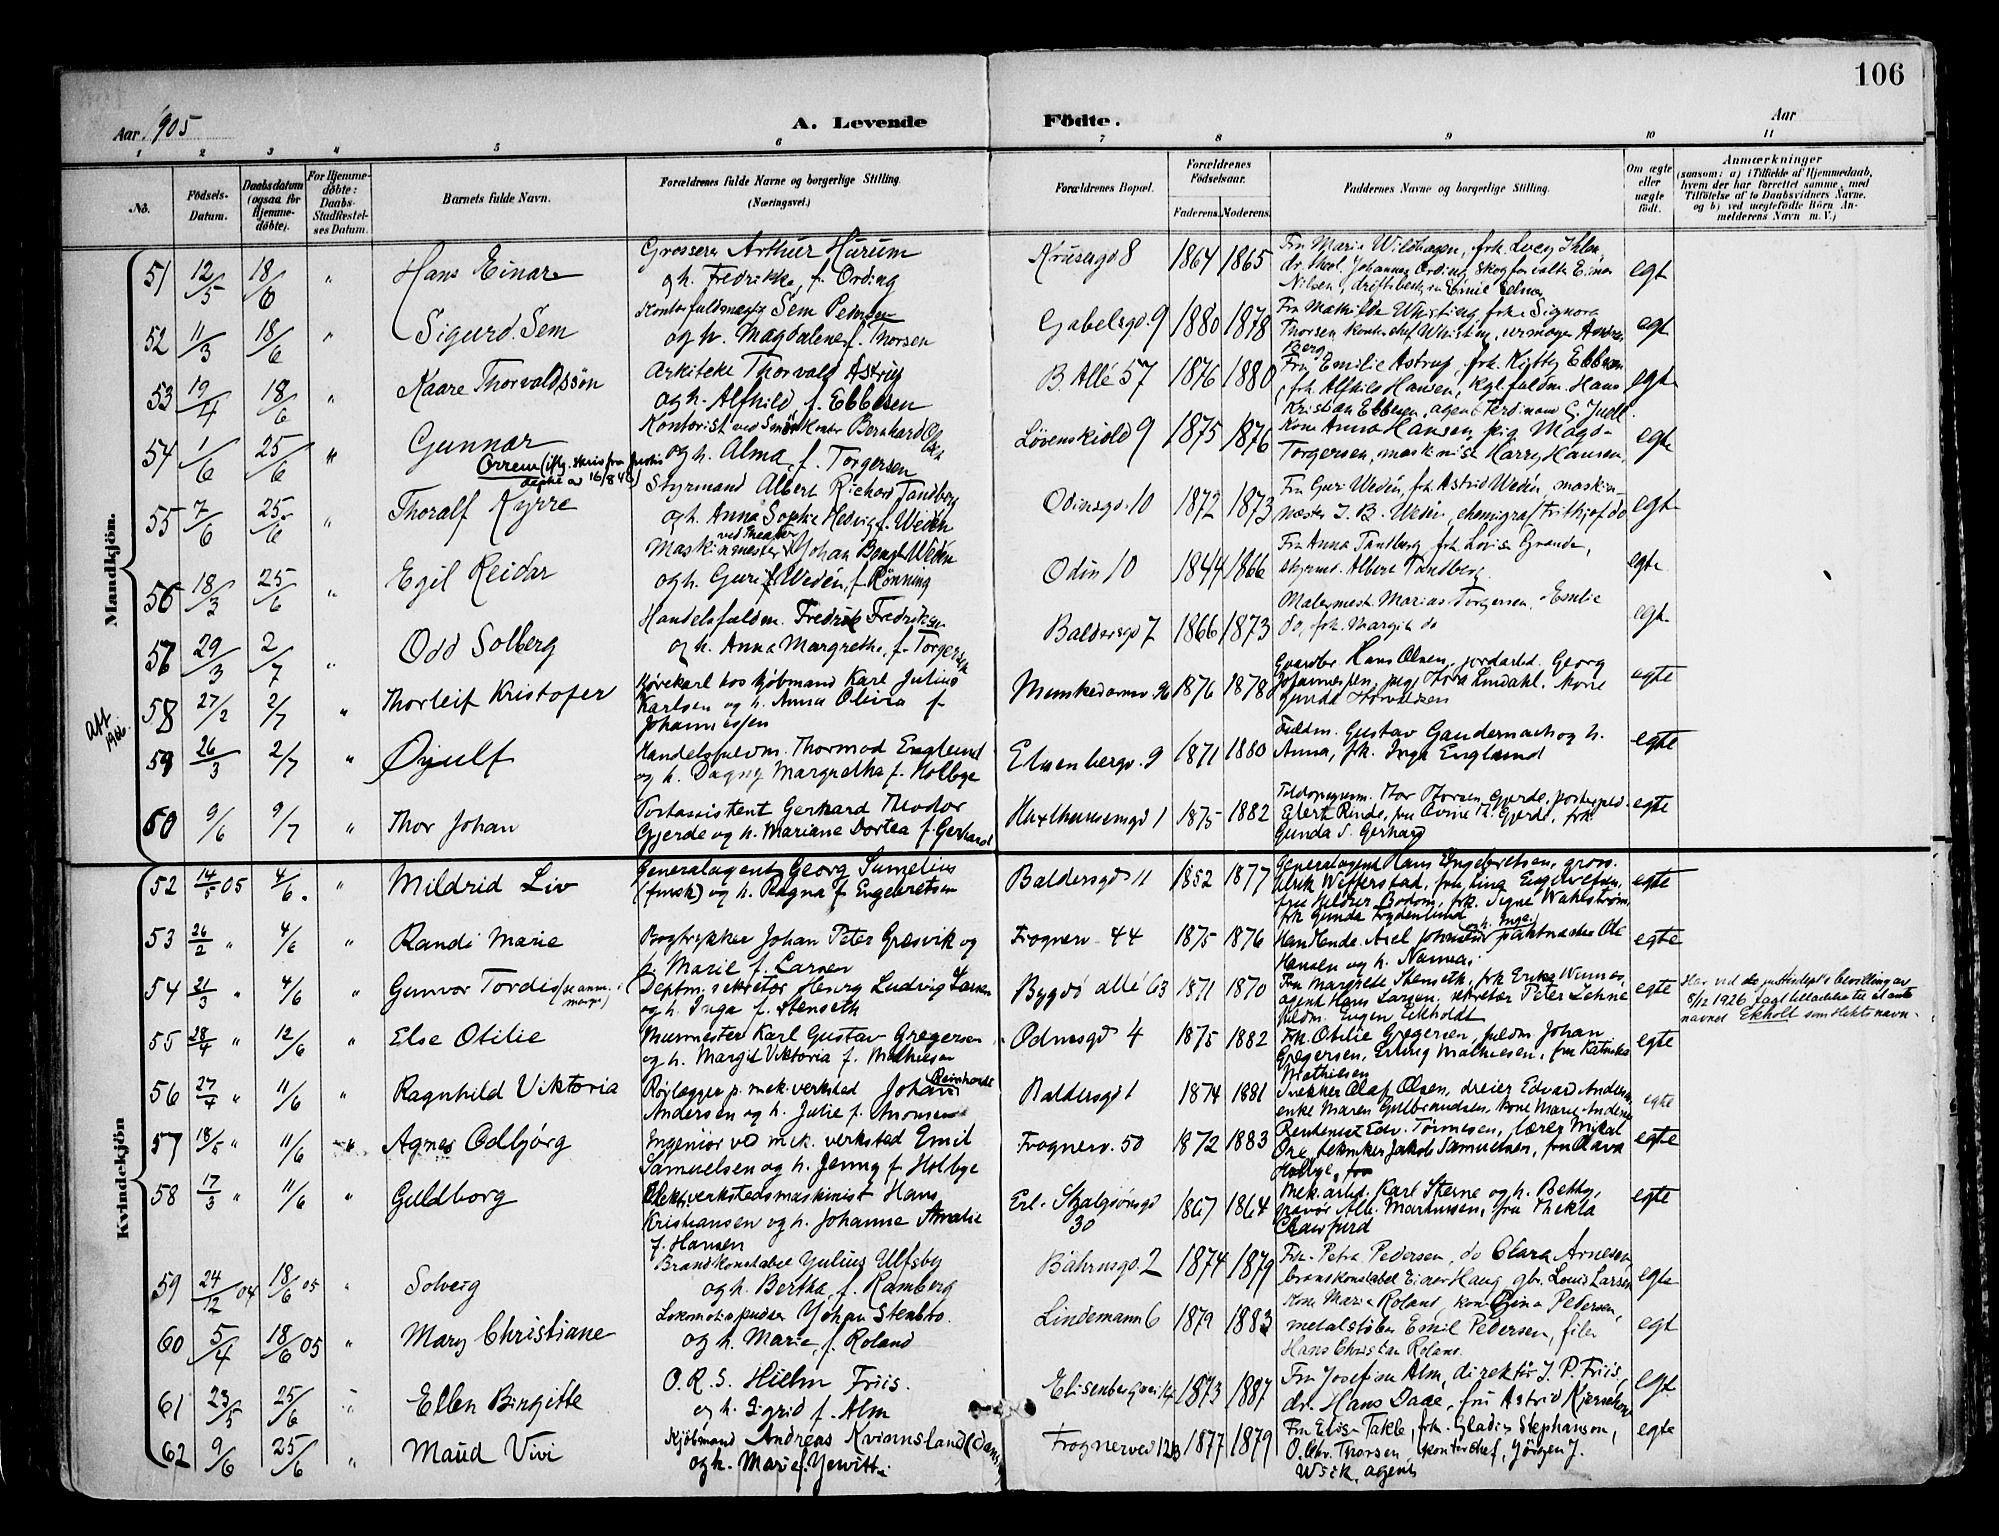 106
Aar 1905
A. Levende Födte.
Aar
1 2 3 4 5 6 7 8 9 10 11
No.
Födsels-Datum.
Daabsdatum (ogsaa for Hjemme-döbte).
For Hjemme-döbte: Daabs-Stadfæstel-ses Datum.
Barnets fulde Navn.
Forældrenes fulde Navne og borgerlige Stilling. (Næringsvei.)
Forældrenes Bopæl.
Forældrenes Födselsaar.
Faderens. Moderens.
Faddernes Navne og borgerlige Stilling.
Om ægte eller uægte födt.
Anmærkninger
(saasom: a) i Tilfælde af Hjemmedaab, hvem der har forrettet samme, med Tilföielse af to Daabsvidners Navne, og b) ved uægtefödte Börn An-melderens Navn m. V.)
Mandkjön.
51 12/5 18/6 " Hans Einar Grosserer Arthur Hurum Krusesgd 8 1864 1865 Fru Marie Wildhagen, frk. Lucy Ihlen, egt
og h. Fredrikke, f. Ording dr. theol. Johannes Ording, skogforvalter Einar
Nilsen,
52 11/3 18/6 " Sigurd Sem Kontorfuldmægtig Sem Pedersen Gabelsgd. 9 1880 1878 Fru Mathilde Whisting, frk. Signora egt
og h. Magdalene f. Thorsen Thorsen, kontorchef Whisting, urmager Anders
Berg
53 19/4 18/6 " Kaare Thorvaldssön Arkitekt Thorvald Astrup B. Allé 57 1876 1880 Fru Emilie Astrup, frk. Kitty Ebbesen egt
og h. Alfhild f. Ebbesen frk. Alfhild Hansen, kgl. fuldm. Hans
Kristian Ebbesen, agent Ferdinand C. Juell.
54 1/6 25/6 " Gunnar Kontorist ved Bernhard Løvenskiold 9 1875 1876 Kone Anna Hansen, pig. Magda egt
Orrem (iflg. skriv fra justis og h. Alma, f. Torgersen Torgersen, maskinist Harry Hansen.
dept av 16/8 40)
55 7/6 25/6 " Thoralf Kyrre Styrmand Albert Richard Tandberg Odinsgd. 10 1872 1873 Fru Guri Wedén, frk. Astrid Wedén, maskin- egt
og h. Anna Sophie Hedvig f. Wedén mester J. B. Wedén, chemigraf Frithjof do
56 18/3 25/6 " Egil Reidar Maskinmester ved Theater Johan Bengt Wedén Odin 10 1844 1866 Fru Anna Tandberg, frk. Lovise Grande, egte
og h. Guri Wedén, f. Rønning styrmd. Albert Tandberg.
57 29/3 2/7 " Odd Solberg Handelsfuldm. Fredrik Fredriksen Baldersgd 7 1866 1873 Malermest. Marius Torgersen, Emilie egt
og h. Anna Margrethe, f. Torgersen do, frk. Margit do
58 27/2 2/7 " Thorleif Kristofer Kjørekarl hos kjøbmand Karl Julius Munkedamsv. 96 1876 1878 Gaardbr. Hans Olsen, jordarbd. Georg egte
Karlsen og h. Anna Olivia f. Johannessen, pige Thora Lindahl. Kone
Johannessen Gunda Thorvaldsen
Att 1966.
59 26/3 2/7 " Øyulf Handelsfuldm. Thormod Englund Elisenbergv. 9 1871 1880 Fuldm. Gustav Gaudernack og h. egte
og h. Dagny Margrethe f. Holbye Anna, frk. Inga Englund
60 9/6 9/7 " Thor Johan Postassistent Gerhard Theodor Huxthausensgd 1 1875 1882 Thor Thorsen Gjerde, egte
Gjerde og h. Mariane Dortea f. Gerhard Gunda S. Gerhard
Kvindekjön
52 14/5 05 4/6 " Mildrid Liv Generalagent Georg Sumelius Baldersgd 11 1852 1877 Generalagent Hans Engebretsen, gross. egte
(finsk) og h. Ragna f. Engebretsen frk. Signe Wahlstrøm,
frk Gunda Frydenlund
53 26/2 " 4/6 " Randi Marie Bogtrykker Johan Peter Gresvik og Frognerv. 44 1875 1876 Axel Johnsen og h. Inga, Ole egte
h. Marie f. Larsen Hansen og h. Nanna.
54 21/3 " 4/6 " Gunvor Tordis (se anm. i marg.) Deptm. sekretær Henry Ludvig Larsen Bygdö allé 63 1871 1870 Fru Margrete Stenseth, egte
og h. Inga f. Stenseth agent Hans Larsen, sekretær Peter Lehne
fuldm. Eugen Eckholdt
Har ved do justisdept's bevilling av
8/12 1926 faat tilladelse til at anta
navnet Ekholt som slektsnavn.
55 28/4 " 12/6 " Else Otilie Murmester Karl Gustav Gregersen Odinsgd 4 1875 1882 Frk. Otilie Gregersen, fuldm Johan egte
og h. Margit Viktoria f. Mathiesen Gregersen, Erling Mathiesen, fru
Mathiesen
56 27/4 " 11/6 " Ragnhild Viktoria Rørlegger p. mek. verksted Johan Reinhardt Baldersgd 1 1874 1881 Snekker Olaf Olsen, dreier Edvard Andersen egte
Andersen og h. Julie f. enke Maren Gulbrandsen, kone Marie Andersen
57 18/5 " 11/6 " Agnes Odbjørg Ingeniör ved mek. verksted Emil Frognerv. 50 1872 1883 Rentenist Edv. Tønnesen, lærer Mikal egte
Samuelsen og h. Jenny f. Holbye Øre, tekniker Jakob Samuelsen, fru Olava
Holbye,
58 17/3 " 11/6 " Guldborg Elektr. verkstedsmaskinist Hans Erl. Skjalgsönsgd 30 1867 1864 Mek. arbd. Karl Sterne og h. Betty, egte
Kristiansen og h. Johanne Amalie gravör Alb. Martinsen, fru Thekla
f. Hansen Crawfurd
59 24/12 04 18/6 05 " Solveig Brandkonstabel Julius Ulfsby Böhrnsgd. 2 1874 1879 Frk. Petra Pedersen, do Clara Arnesen, egte
og h. Bertha, f. Ramberg brandkonstabel Einar Haug, gbr. Louis Larsen
60 5/4 18/6 05 " Mary Christiane Lokomotivpudser Johan Stenbro Lindemann 6 1879 1883 Kone Marie Roland, kone Gina Pedersen, egt
og h. Marie, f. Roland metalstöber Emil Pedersen, filer
Hans Christian Roland.
61 23/5 25/6 " Ellen Birgitte O.R.S. Hielm Friis. Elisenbergvei 14 1873 1887 Fru Josefine Alm, direktör J. P. Friis, egt.
og h. Sigrid f. Alm dr. Hans Daae, fru Astrid
62 9/6 25/6 " Maud Vivi Kjöbmand Andreas Kvinnsland Frognervei 12 1877 1879 Fru Elise Takle, frk. Gladis Stephanson, egte
og h. Marie f. Jewitt. O. Chr. Thorsen, kontorchef, Jörgen J.
Wiik, agent